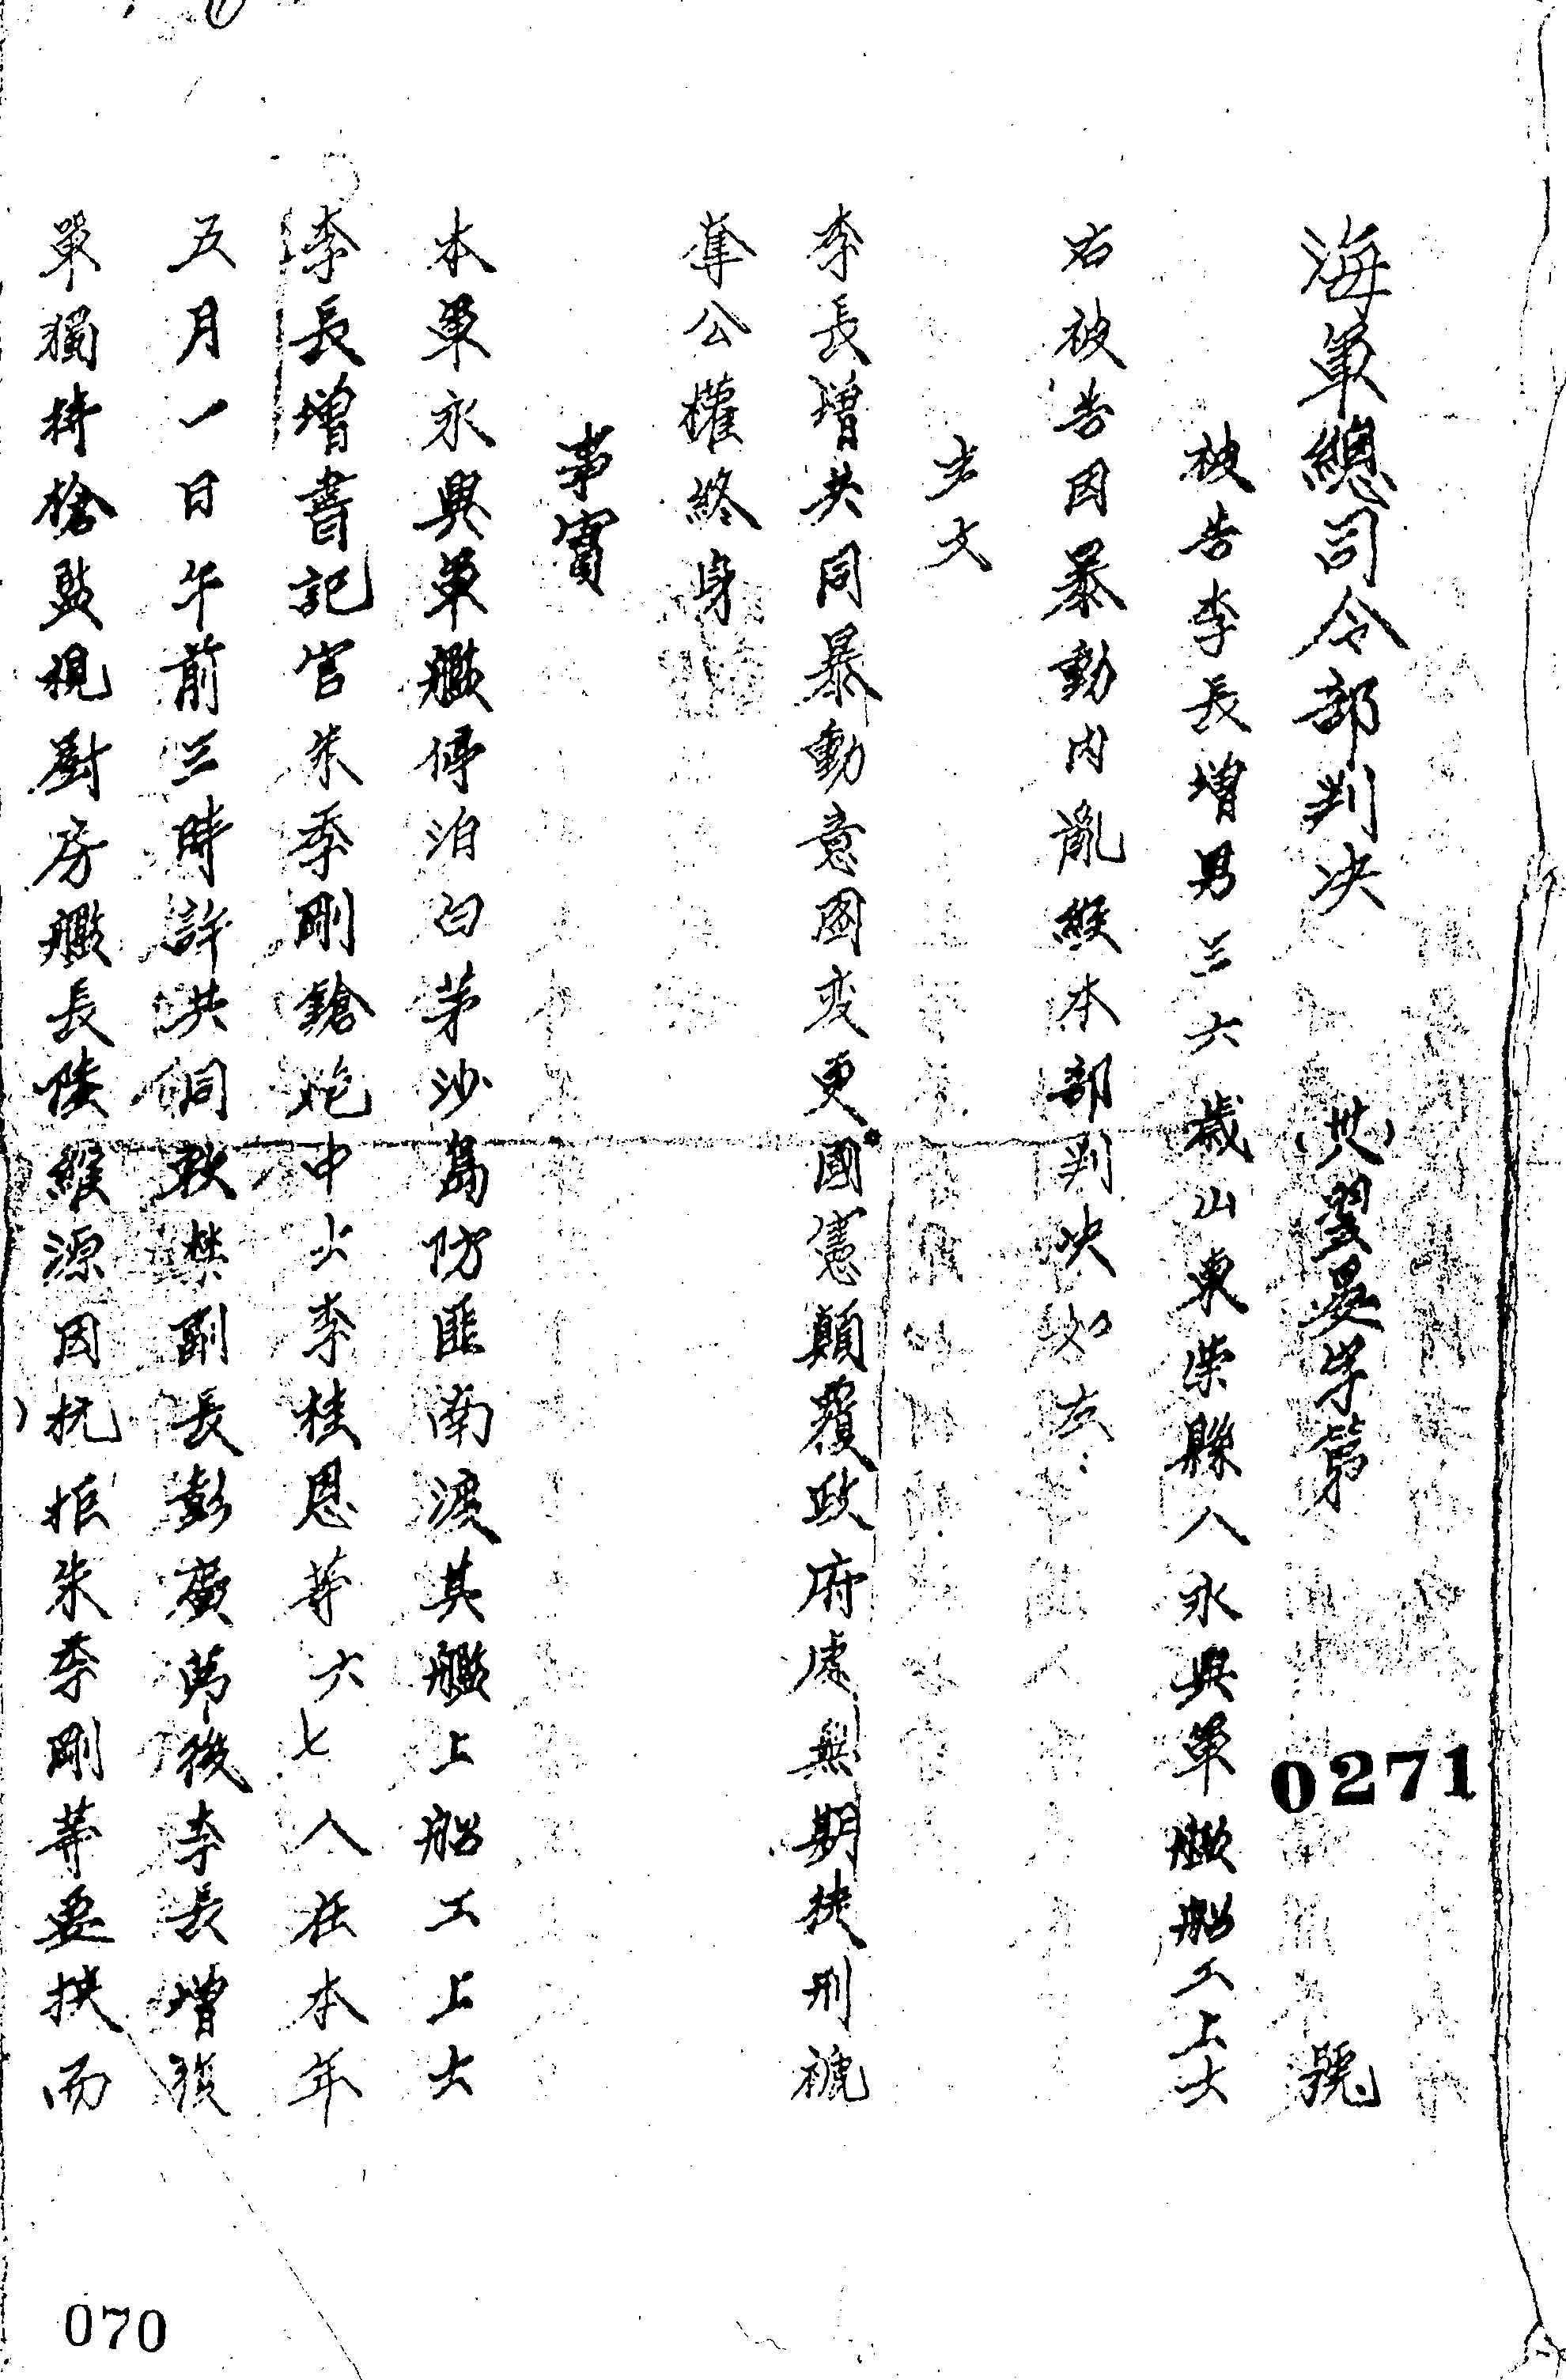 海軍總司令部判決 (卅)翌晏字第 0271 號
被告李長增男三六歲山東榮縣人永興軍艦船工上士
右被告因暴動内亂經本部判決如左：
主文
李長增共同暴動意图变更國憲顛覆政府處無期徒刑褫
奪公權終身
事實
本軍永興軍艦停泊白茅沙島防匪南渡其艦上船工上士
李長增書記官朱季剛鎗炮中士李桂恩等六七人在本年
五月一日午前三時許共同軟禁副長彭廣萬後李長增須
單獨持槍監視廚房艦長陸維源因抗拒朱季剛等要挾而
070